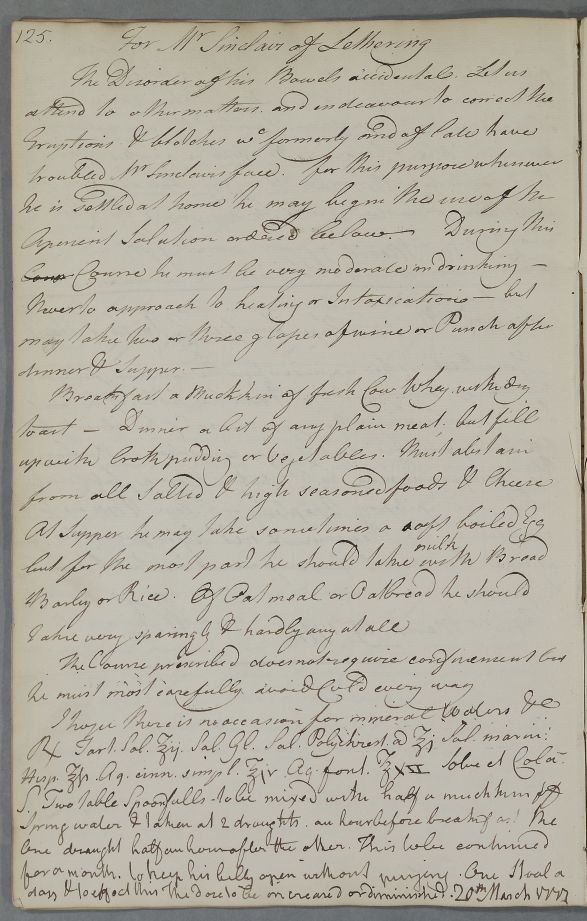 125.
For Mr Sinclair of Lethering
The Disorder of his Bowels accidental. Let us
attend to other matters. and endeavour to correct the
Eruptions & blotches wc formerly and of late have
troubled Mr Sinclairs face. for this purpose whenever
he is settled at home he may begin the use of the
Aperient Solution ordered below. During this
Course he must be very moderate in drinking —
Never to approach to heating or Intoxication — but
may take two or three glasses of wine or Punch after
dinner & Supper. —
Breakfast a Mutchkin of fresh Cow Whey with dry
toast — Dinner a bit of any plain meat. but fill
up with broth pudding or Vegetables. Must abstain
from all Salted & high seasoned foods & Cheese
At Supper he may take sometimes a soft boiled Egg
but for the most part he should take milk with Bread
Barley or Rice. Of Oatmeal or Oatbread he should
take very sparingly & hardly any at all
The Course prescribed does not require confinement but
he must most carefully avoid Cold every way
I hope there is no occasion for mineral Waters &c
℞ Tart. Sol. ʒij. Sal. Gl. Sal. Polychrest. a ʒj Sal. marin:
Hisp. ʒſs. Aq. cinn. simpl. ℥iv Aq. font. ℥xii solve et Cola.
S. Two table Spoonfulls to be mixed with half a mutchkin of
Spring water & taken at 2 draughts. an hour before breakfast the
One draught half an hour after the other. This to be continued
for a month. to keep his belly open without purging. One Stool a
day & to effect this The dose to be increased or diminished. 20th March 1777